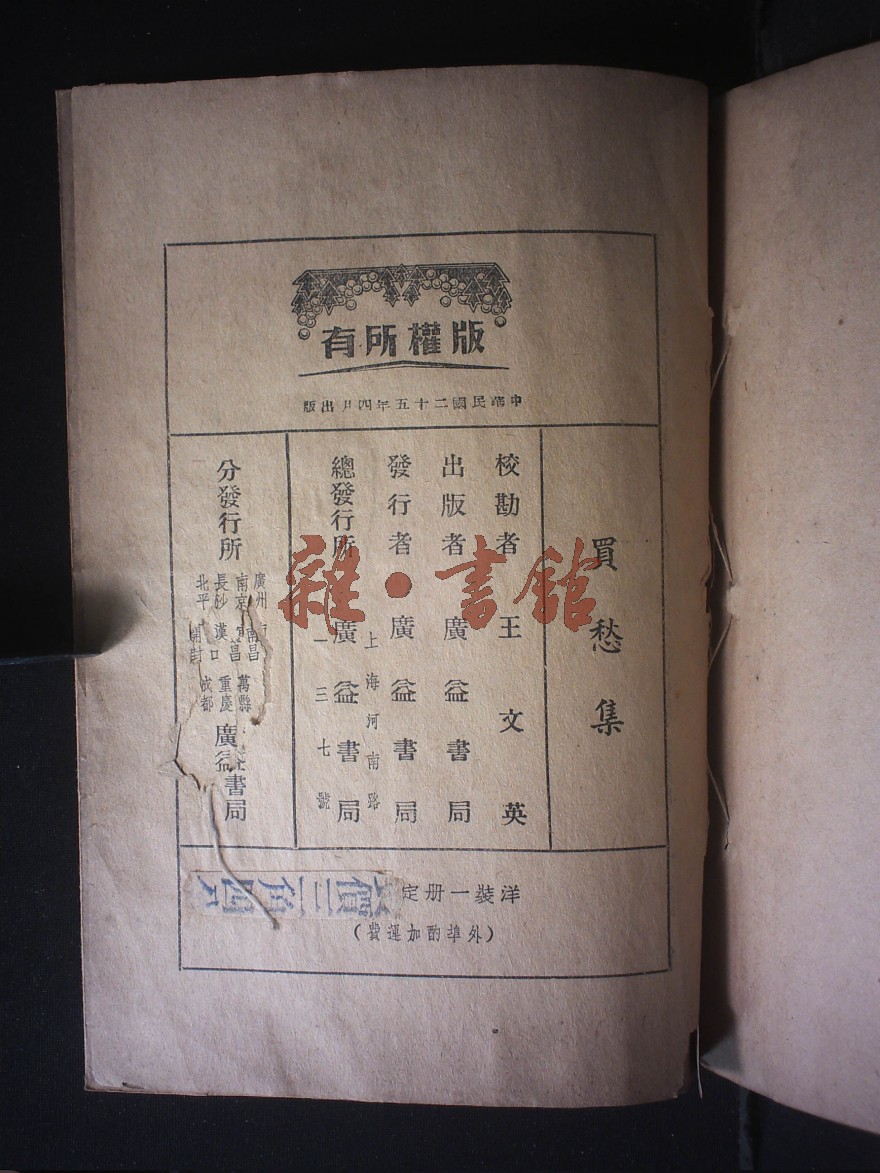 版權所有
中華民國二十五年四月出版
買愁集
校勘者 王文英
出版者 廣益書局
發行者 廣益書局
上海河南路
總發行所 廣益書局
一三七號
分發行所
廣州
南京 南昌 萬縣
長沙 漢口 宜昌 重慶
北平 開封 成都
廣益書局
洋裝一册定
價三角
（外埠酌加運費）
雜·書館